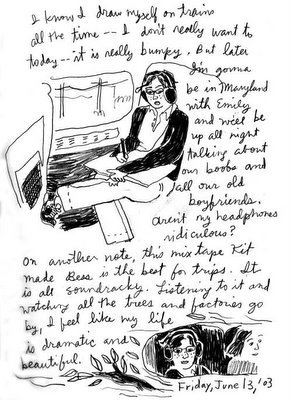 I know I draw myself on trains
all the time -- I don't really want to
today -- it is really bumpy. But later
I'm gonna
be in Maryland
with Emily
and we'll be
up all night
talking about
our boobs and
all our old
boyfriends.
Arent my headphones
ridiculous?
On another note, this mix tape Kit
made Bess is the best for trips. It
is all soundtracky. Listening to it and
watching all the trees and factories go
by, I feel like my life
is dramatic and
beautiful.
Friday, June 13, '03